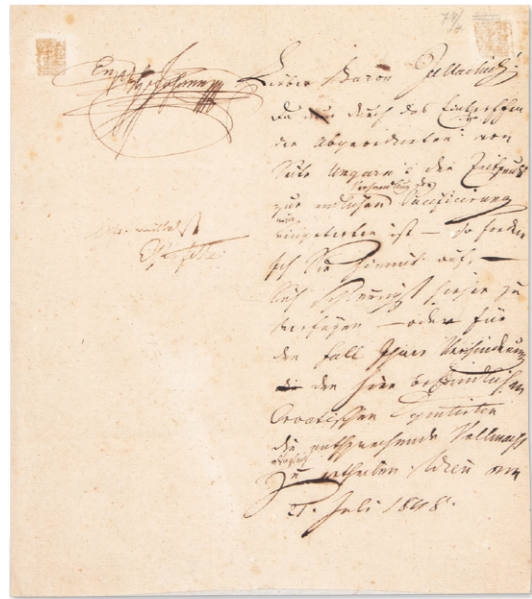 74/
Erzh Johann
Lieber Baron Jellachich
Da nun durch das Eintreffen
der Abgeordneten von
Seite Ungarns der Zeitpunkt
Verhandlung der
zur endlichen Pacificirung
nun
eingetreten ist — so fordere
ich Sie hiemit auf, —
sich schleunigst hieher zu
verfügen — oder für
den Fall Ihrer Verhinderung
den hier befindlichen
Croatischen Deputirten
die entsprechende Vollmacht
zu ertheilen. Wien am
21. Juli 1848.